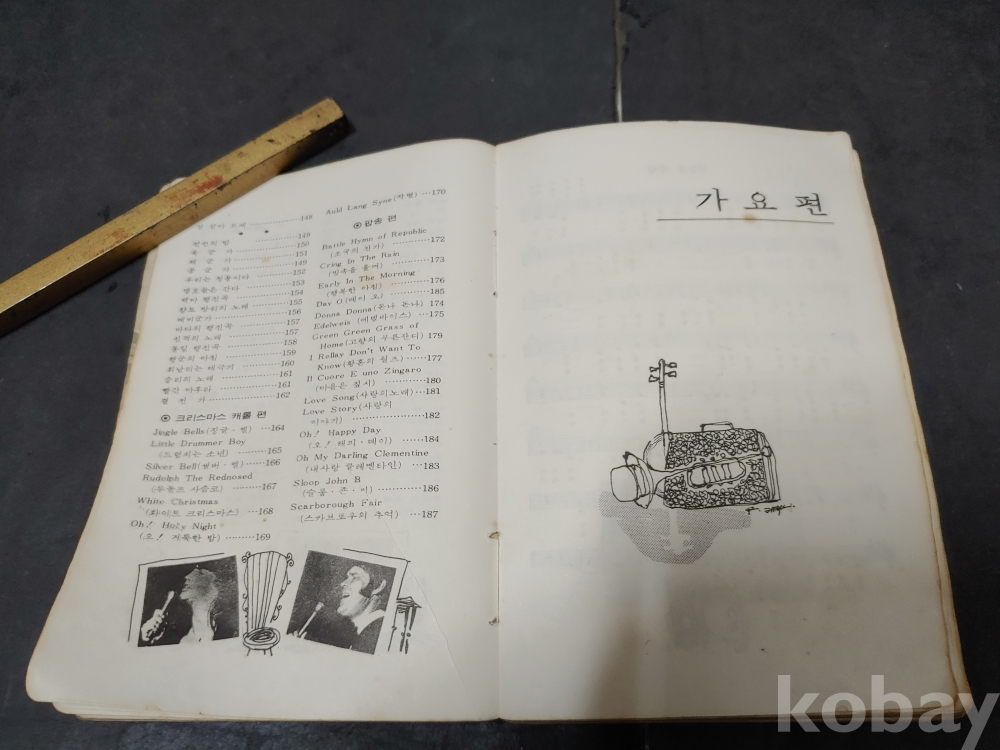 148
전선의 밤 148
육 군 가 150
해 군 가 151
공 군 가 149
우리는 청룡이다 152
맹호들은 간다 153
백마 행진곡 154
향토 방위의 노래 155
예비군가 156
바다의 행진곡 157
진격의 노래 157
통일 행진곡 158
행군의 아침 159
휘날리는 태극기 160
승리의 노래 161
빨간 마후라 161
결 전 가 162
크리스마스 캐롤 편
Jingle Bells(징글·벨) 164
Little Drummer Boy
(드럼치는 소년) 165
Silver Bell(씰버·벨) 166
Rudolph The Rednosed
(루돌프 사슴코) 167
White Christmas
(화이트 크리스마스) 168
Oh! Holy Night
(오! 거룩한 밤) 169
Auld Lang Syne(작별) 170
팝송 편
Battle Hymn of Republic
(조국의 찬가) 172
Cring In The Rain
(빗속을 울며) 173
Early In The Morning
(행복한 아침) 176
Day O(데이 오) 185
Donna Donna(돈나 돈나) 174
Edelweis (에델바이스) 175
Green Green Grass of
Home(고향의 푸른잔디) 179
I Rellay Don't Want To
Know(황혼의 월츠) 177
Il Cuore E uno Zingaro
(마음은 짚시) 180
Love Song(사랑의노래) 181
Love Story(사랑의
이야기) 182
Oh! Happy Day
(오! 해피·데이) 184
Oh My Darling Clementine
(내사랑 클레멘타인) 183
Sloop John B
(슬룹·죤·비) 186
Scarborough Fair
(스카브로우의 추억) 187
가요편
kobay